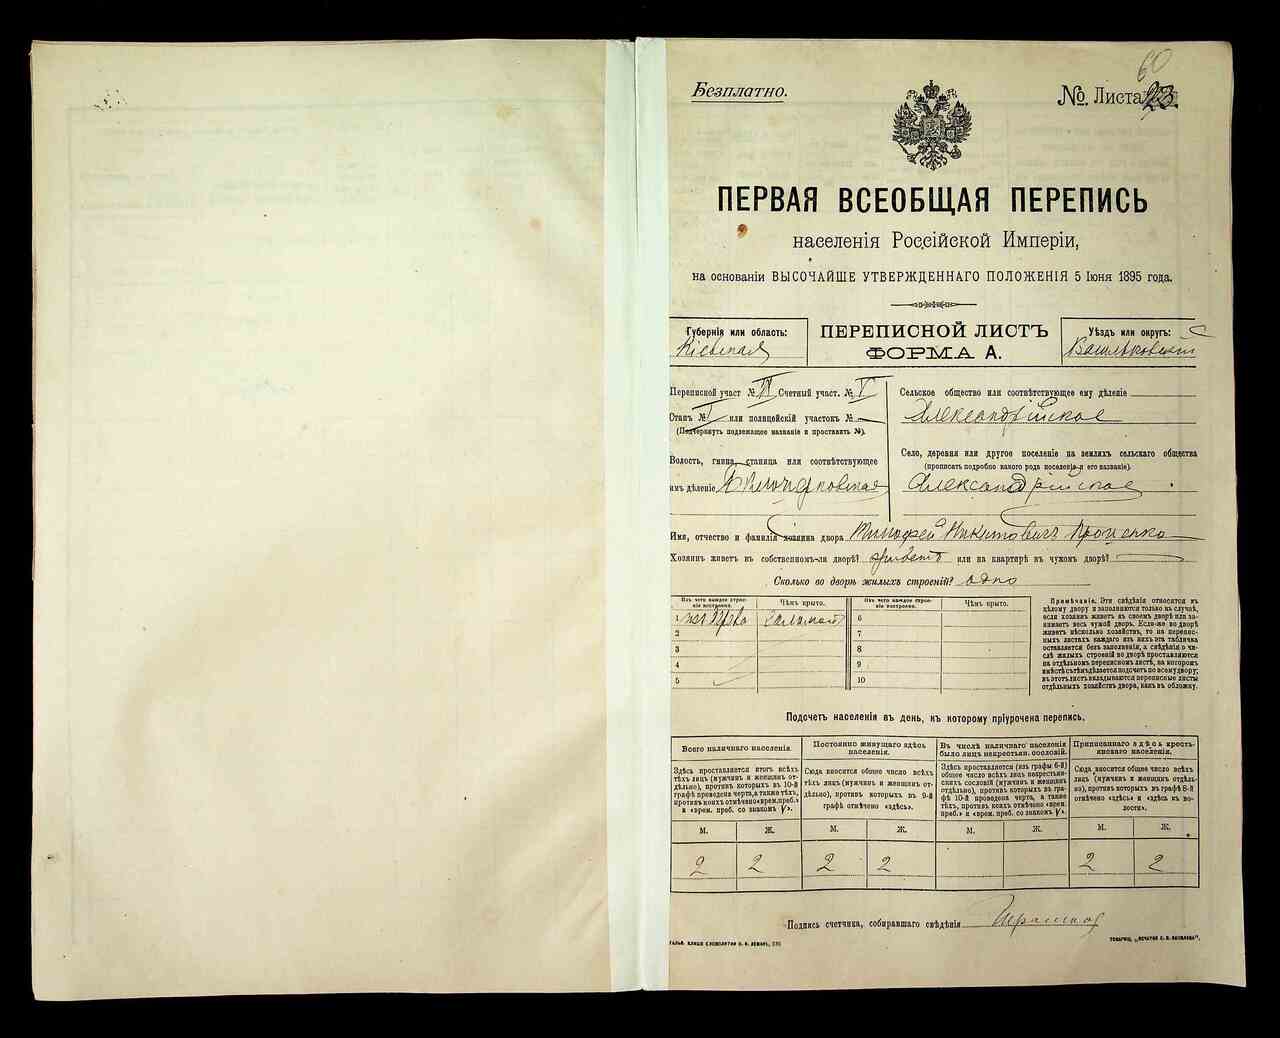 60
Безплатно.
№. Листа 23
ПЕРВАЯ ВСЕОБЩАЯ ПЕРЕПИСЬ
населенія Россійской Имперіи,
на основаніи ВЫСОЧАЙШЕ УТВЕРЖДЕННАГО ПОЛОЖЕНІЯ 5 Іюня 1895 года.
Губернія или область:
Кіевская
ПЕРЕПИСНОЙ ЛИСТЪ
ФОРМА А.
Уѣздъ или округъ:
Васильковскій
Переписной участ № Счетный участ. № V
Станъ № I или полицейскій участокъ №
(Подчеркнуть подлежащее названіе и проставить №).
Волость, гмина, станица или соотвѣтствующее
имъ дѣленіе
Сельское общество или соотвѣтствующее ему дѣленіе
Александрійское
Село, деревня или другое поселеніе на земляхъ сельскаго общества
(прописать подробно какого рода поселенія и его названіе).
Александрійское
Имя, отчество и фамилія хозяина двора Тимофей Никитовичъ Проценко
Хозяинъ живетъ въ собственномъ-ли дворѣ? живетъ или на квартирѣ въ чужомъ дворѣ?
Сколько во дворѣ жилыхъ строеній? одно
Изъ чего каждое строеніе построено.
Чѣмъ крыто.
Изъ чего каждое строеніе построено.
Чѣмъ крыто.
1 изъ дерева соломой 6
2 7
3 8
4 9
5 10
Примѣчаніе. Эти свѣдѣнія относятся къ
цѣлому двору и заполняются только въ случаѣ,
если хозяинъ живетъ въ своемъ дворѣ или занимаетъ
весь чужой дворъ. Если-же во дворѣ
живетъ нѣсколько хозяйствъ, то на переписныхъ
листахъ каждаго изъ нихъ эта табличка
оставляется безъ заполненія, а свѣдѣнія о числѣ
жилыхъ строеній во дворѣ проставляются
на отдѣльномъ переписномъ листѣ, на которомъ
вмѣстѣ съ тѣмъ дѣлается подсчетъ по всему двору;
въ этотъ листъ вкладываются переписные листы
отдѣльныхъ хозяйствъ двора, какъ въ обложку.
Подсчетъ населенія въ день, къ которому пріурочена перепись.
Всего наличнаго населенія.
Постоянно живущаго здѣсь населенія.
Въ числѣ наличнаго населенія было лицъ некрестьян. сословій.
Приписаннаго здѣсь крестьянскаго населенія.
Здѣсь проставляется итогъ всѣхъ
тѣхъ лицъ (мужчинъ и женщинъ отдѣльно),
противъ которыхъ въ 10-й
графѣ проведена черта, а также тѣхъ,
противъ коихъ отмѣчено «врем. преб.»
и «врем. преб. со знакомъ V».
Сюда вносится общее число всѣхъ
тѣхъ лицъ (мужчинъ и женщинъ отдѣльно),
противъ которыхъ въ 9-й
графѣ отмѣчено «здѣсь».
Здѣсь проставляется (изъ графы 6-й)
общее число всѣхъ лицъ некрестьянскихъ
сословій (мужчинъ и женщинъ
отдѣльно), противъ которыхъ въ графѣ
10-й проведена черта, а также
тѣхъ, противъ коихъ отмѣчено «врем.
преб.» и «врем. преб. со знакомъ V».
Сюда вносится общее число всѣхъ
лицъ (мужчинъ и женщинъ отдѣльно),
противъ которыхъ въ графѣ 8-й
отмѣчено «здѣсь» и «здѣсь въ волости».
М. Ж. М. Ж. М. Ж. М. Ж.
2 2 2 2 2 2
Подпись счетчика, собиравшаго свѣдѣнія